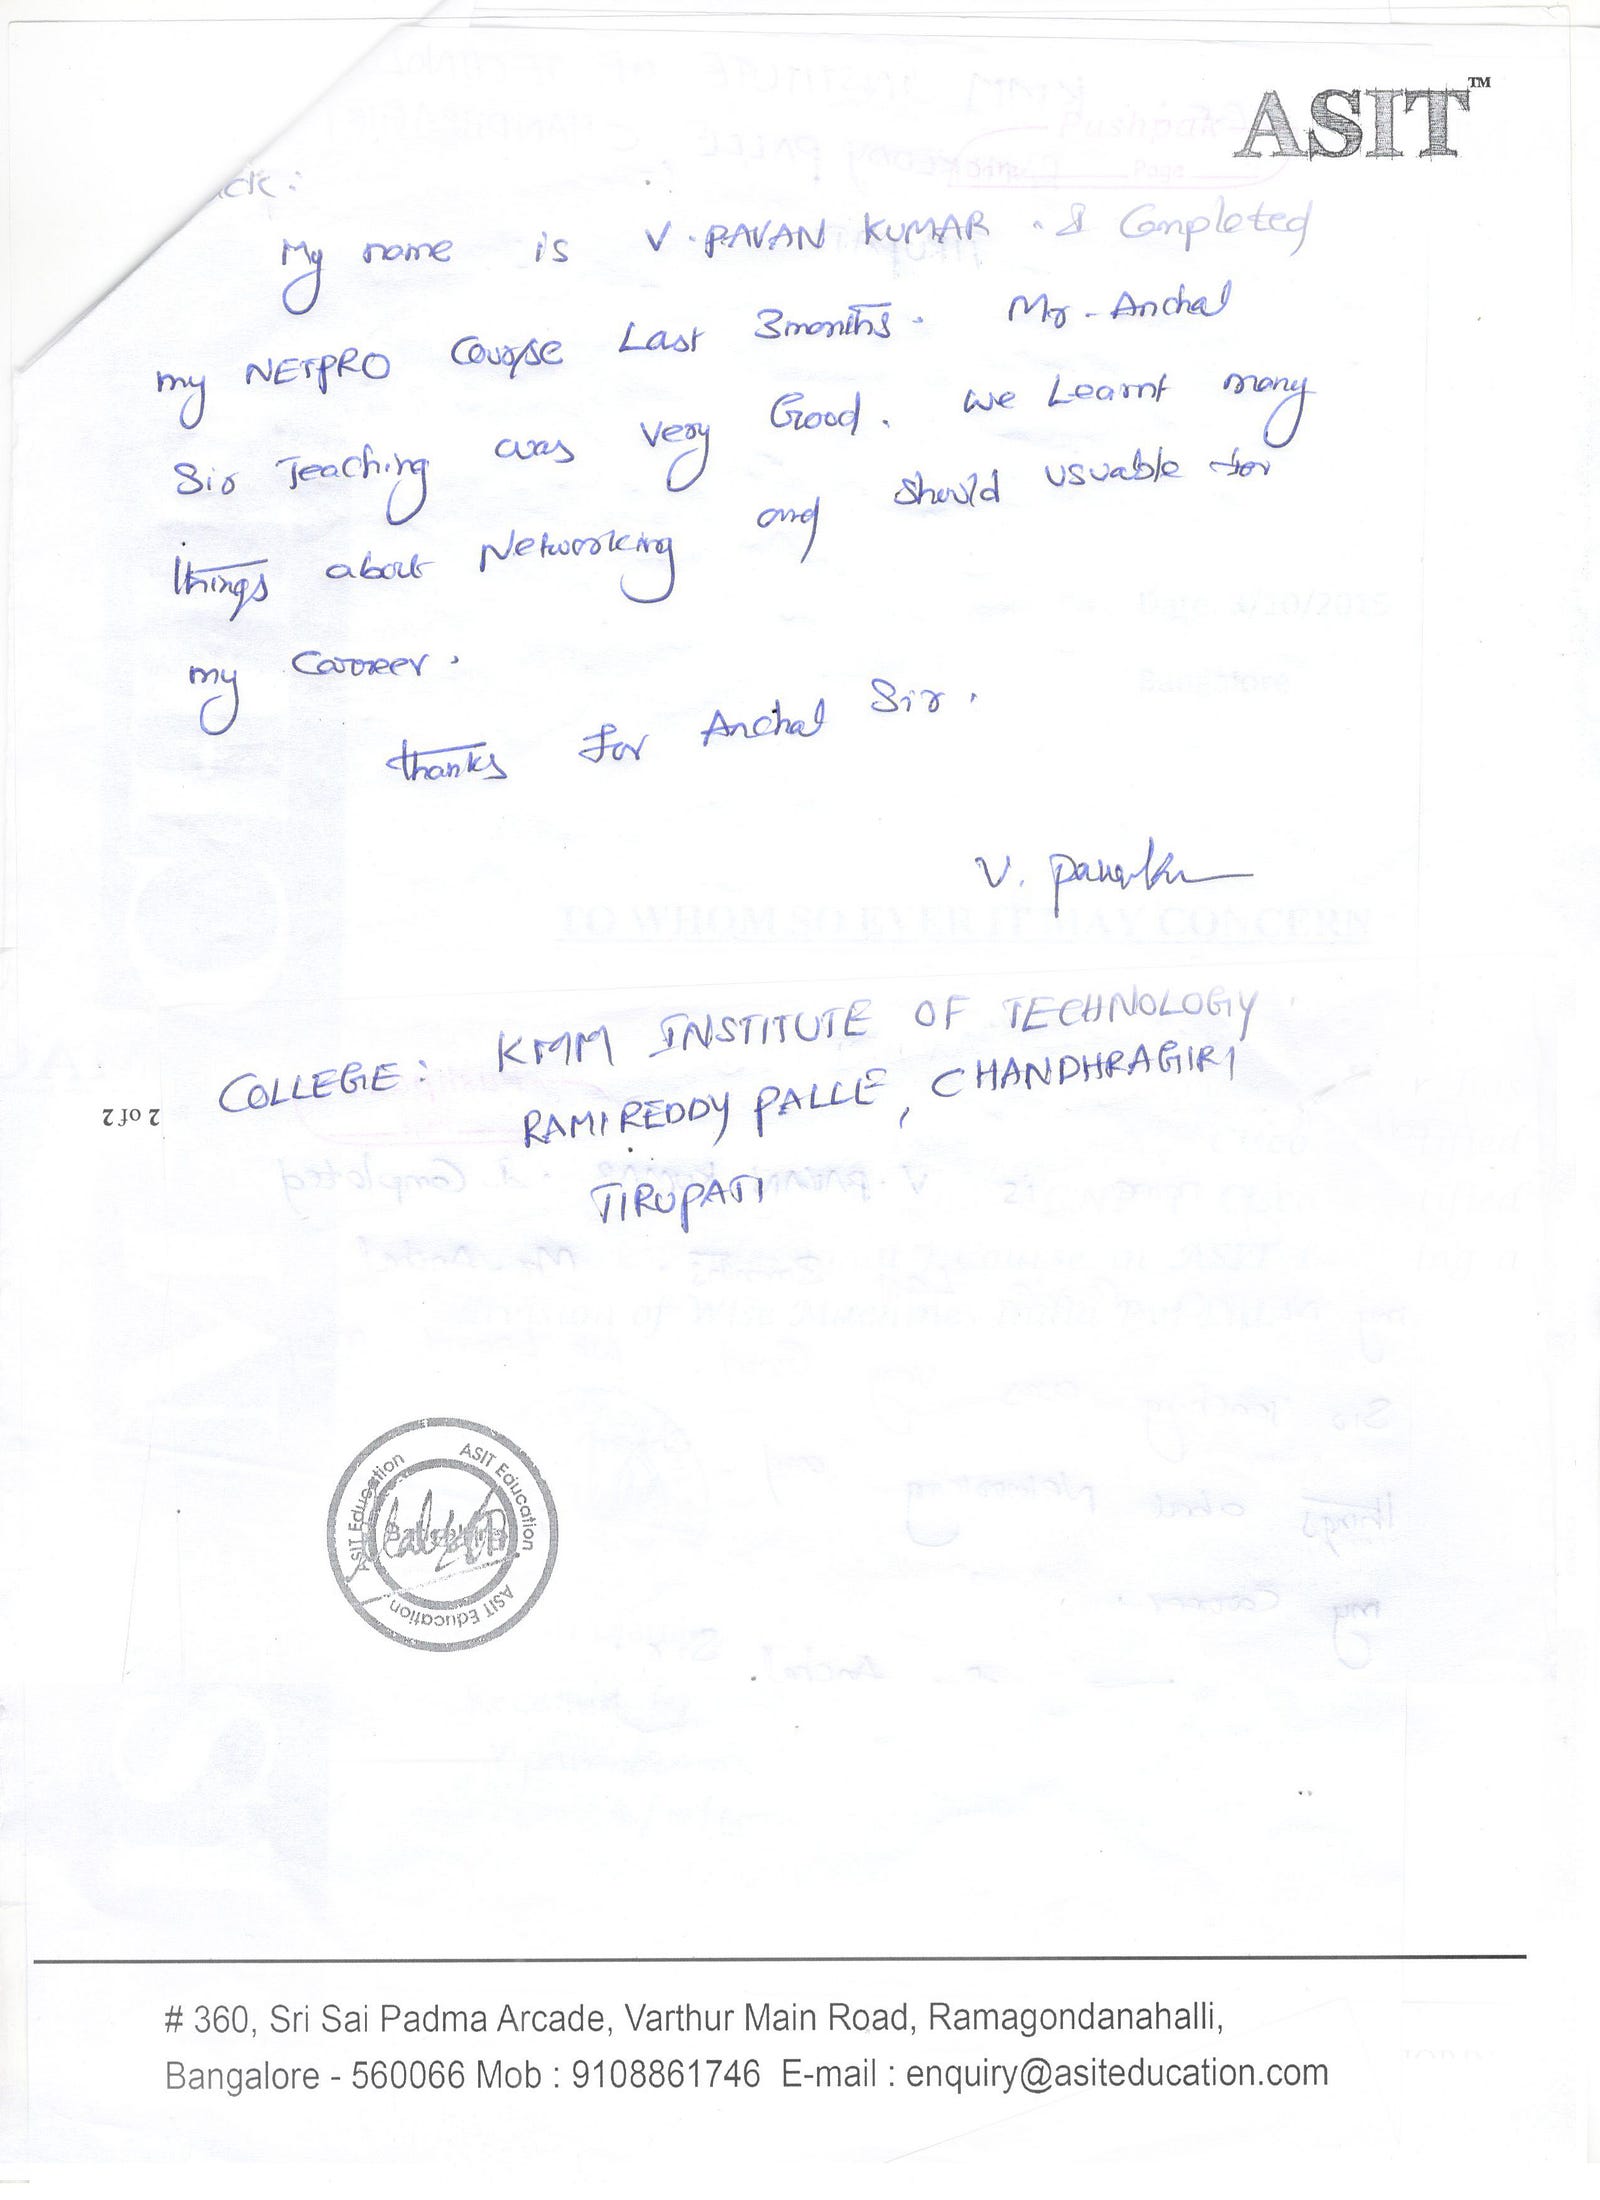 ASIT™
ck:
My name is V. PAVAN KUMAR. I Completed
my NETPRO Course Last 3months. Mr. Anchal
Sir Teaching was very Good. we Learnt many
things about Networking and should usuable for
my Carreer.
thanks for Anchal Sir.
V.
COLLEGE: KMM INSTITUTE OF TECHNOLOGY
RAMIREDDY PALLE, CHANDHRAGIRI
TIRUPATI
2 of 2
ASIT Education ASIT Education ASIT Education
# 360, Sri Sai Padma Arcade, Varthur Main Road, Ramagondanahalli,
Bangalore - 560066 Mob : 9108861746 E-mail : enquiry@asiteducation.com